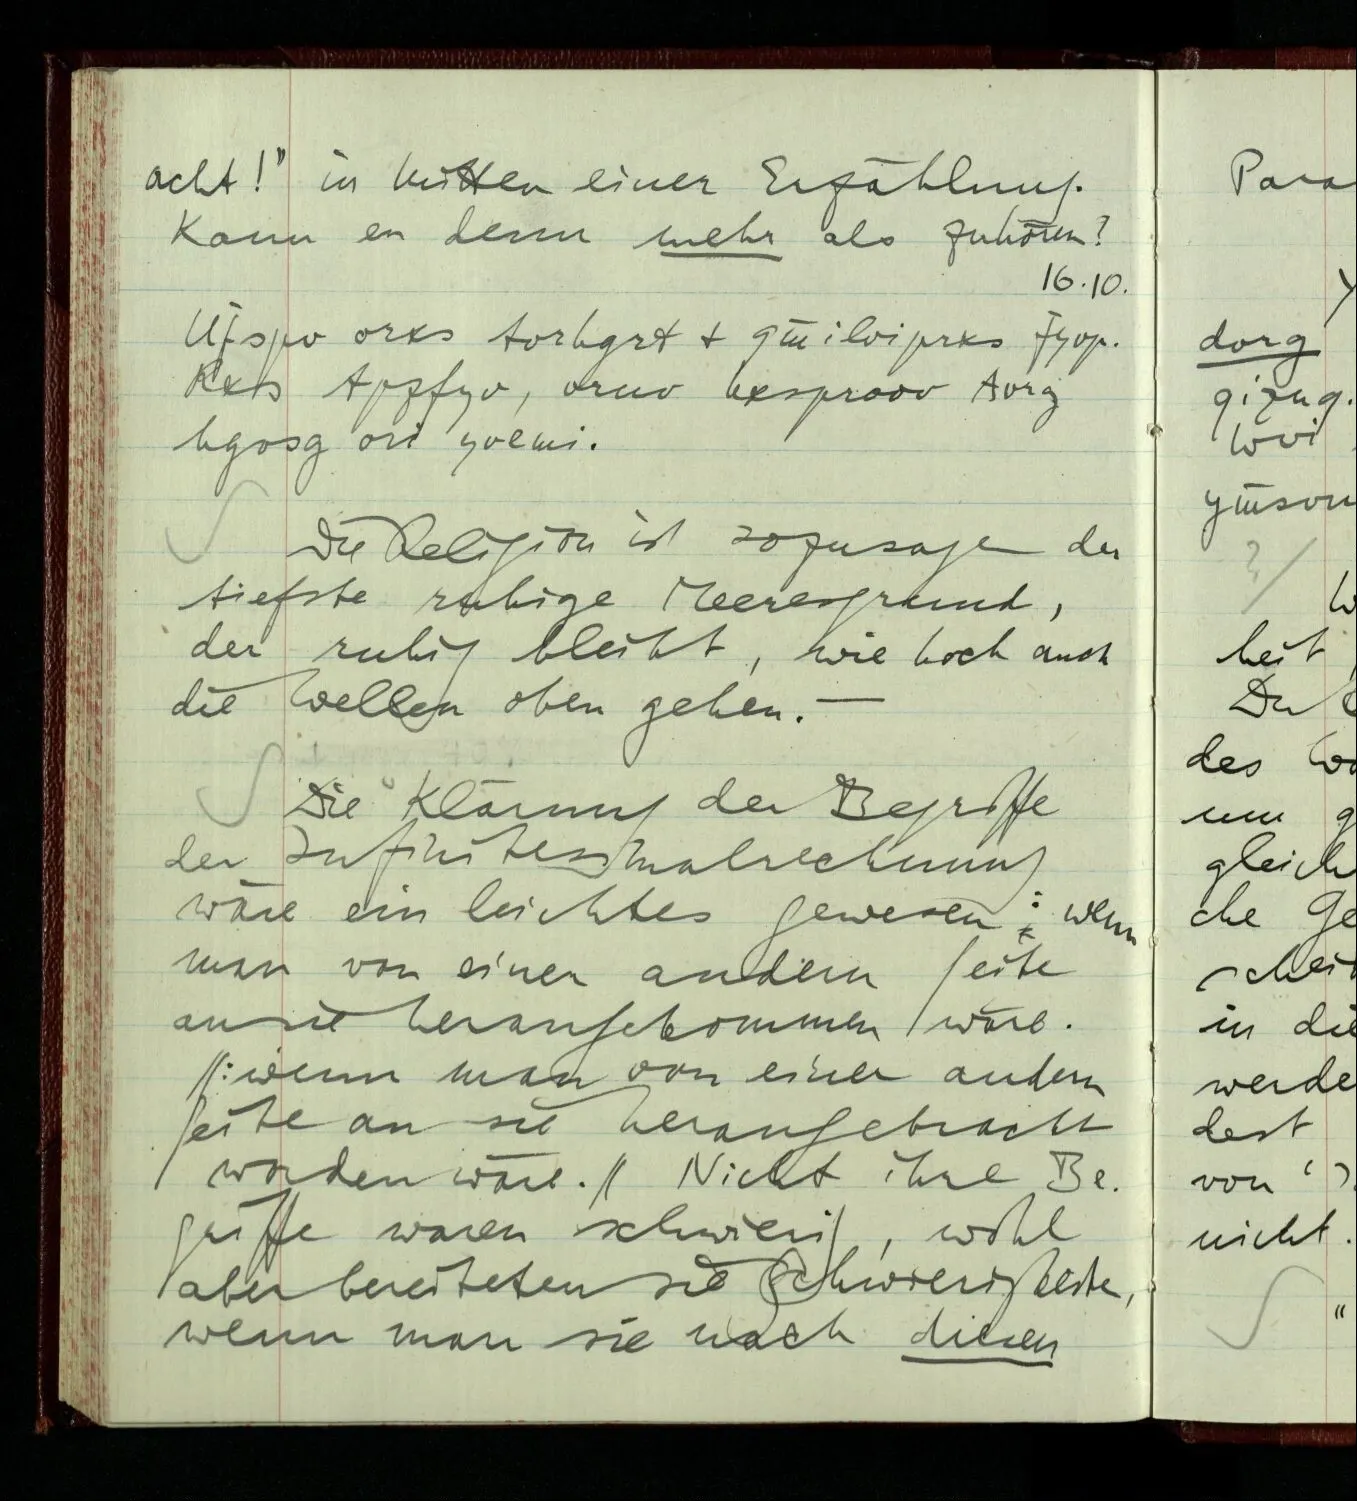 acht!" in mitten einer Erzählung.
Kann er denn mehr als zuhören?
16.10.
orxs +
ori
Die Religion ist sozusagen der
tiefste ruhige Meeresgrund,
der ruhig bleibt, wie hoch auch
die Wellen oben gehen. —
Die Klärung der Begriffe
der Infinitesimalrechnung
wäre ein leichtes gewesen: wenn
man von einer andern Seite
an sie herangekommen wäre.
//: wenn man von einer andern
Seite an sie herangebracht
worden wäre. // Nicht ihre Be-
griffe waren schwierig, wohl
aber bereiteten sie Schwierigkeite,
wenn man sie nach diesen
Para
dorg
gizug.
wvi
?/
heit,
Du
des
um g
gleich
che Ge
scheid
in die
werde
dest
von '
nicht.
"